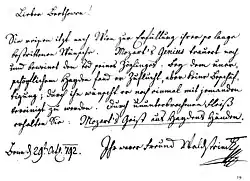 Lieber Beethowen!
Sie reisen itzt nach Wien zur Erfüllung ihrer so lange
bestrittenen Wünsche. Mozart's Genius trauert noch
und beweinet den Tod seines Zöglinges. Bey dem uner-
schöpflichen Hayden fand er Zuflucht, aber keine Beschäf-
tigung; durch ihn wünscht er noch einmal mit jemanden
vereinigt zu werden. Durch ununterbrochenen Fleiß
erhalten Sie: Mozart's Geist aus Haydens Händen.
Bonn d 29t Oct. 792. Ihr warer Freund Waldstein